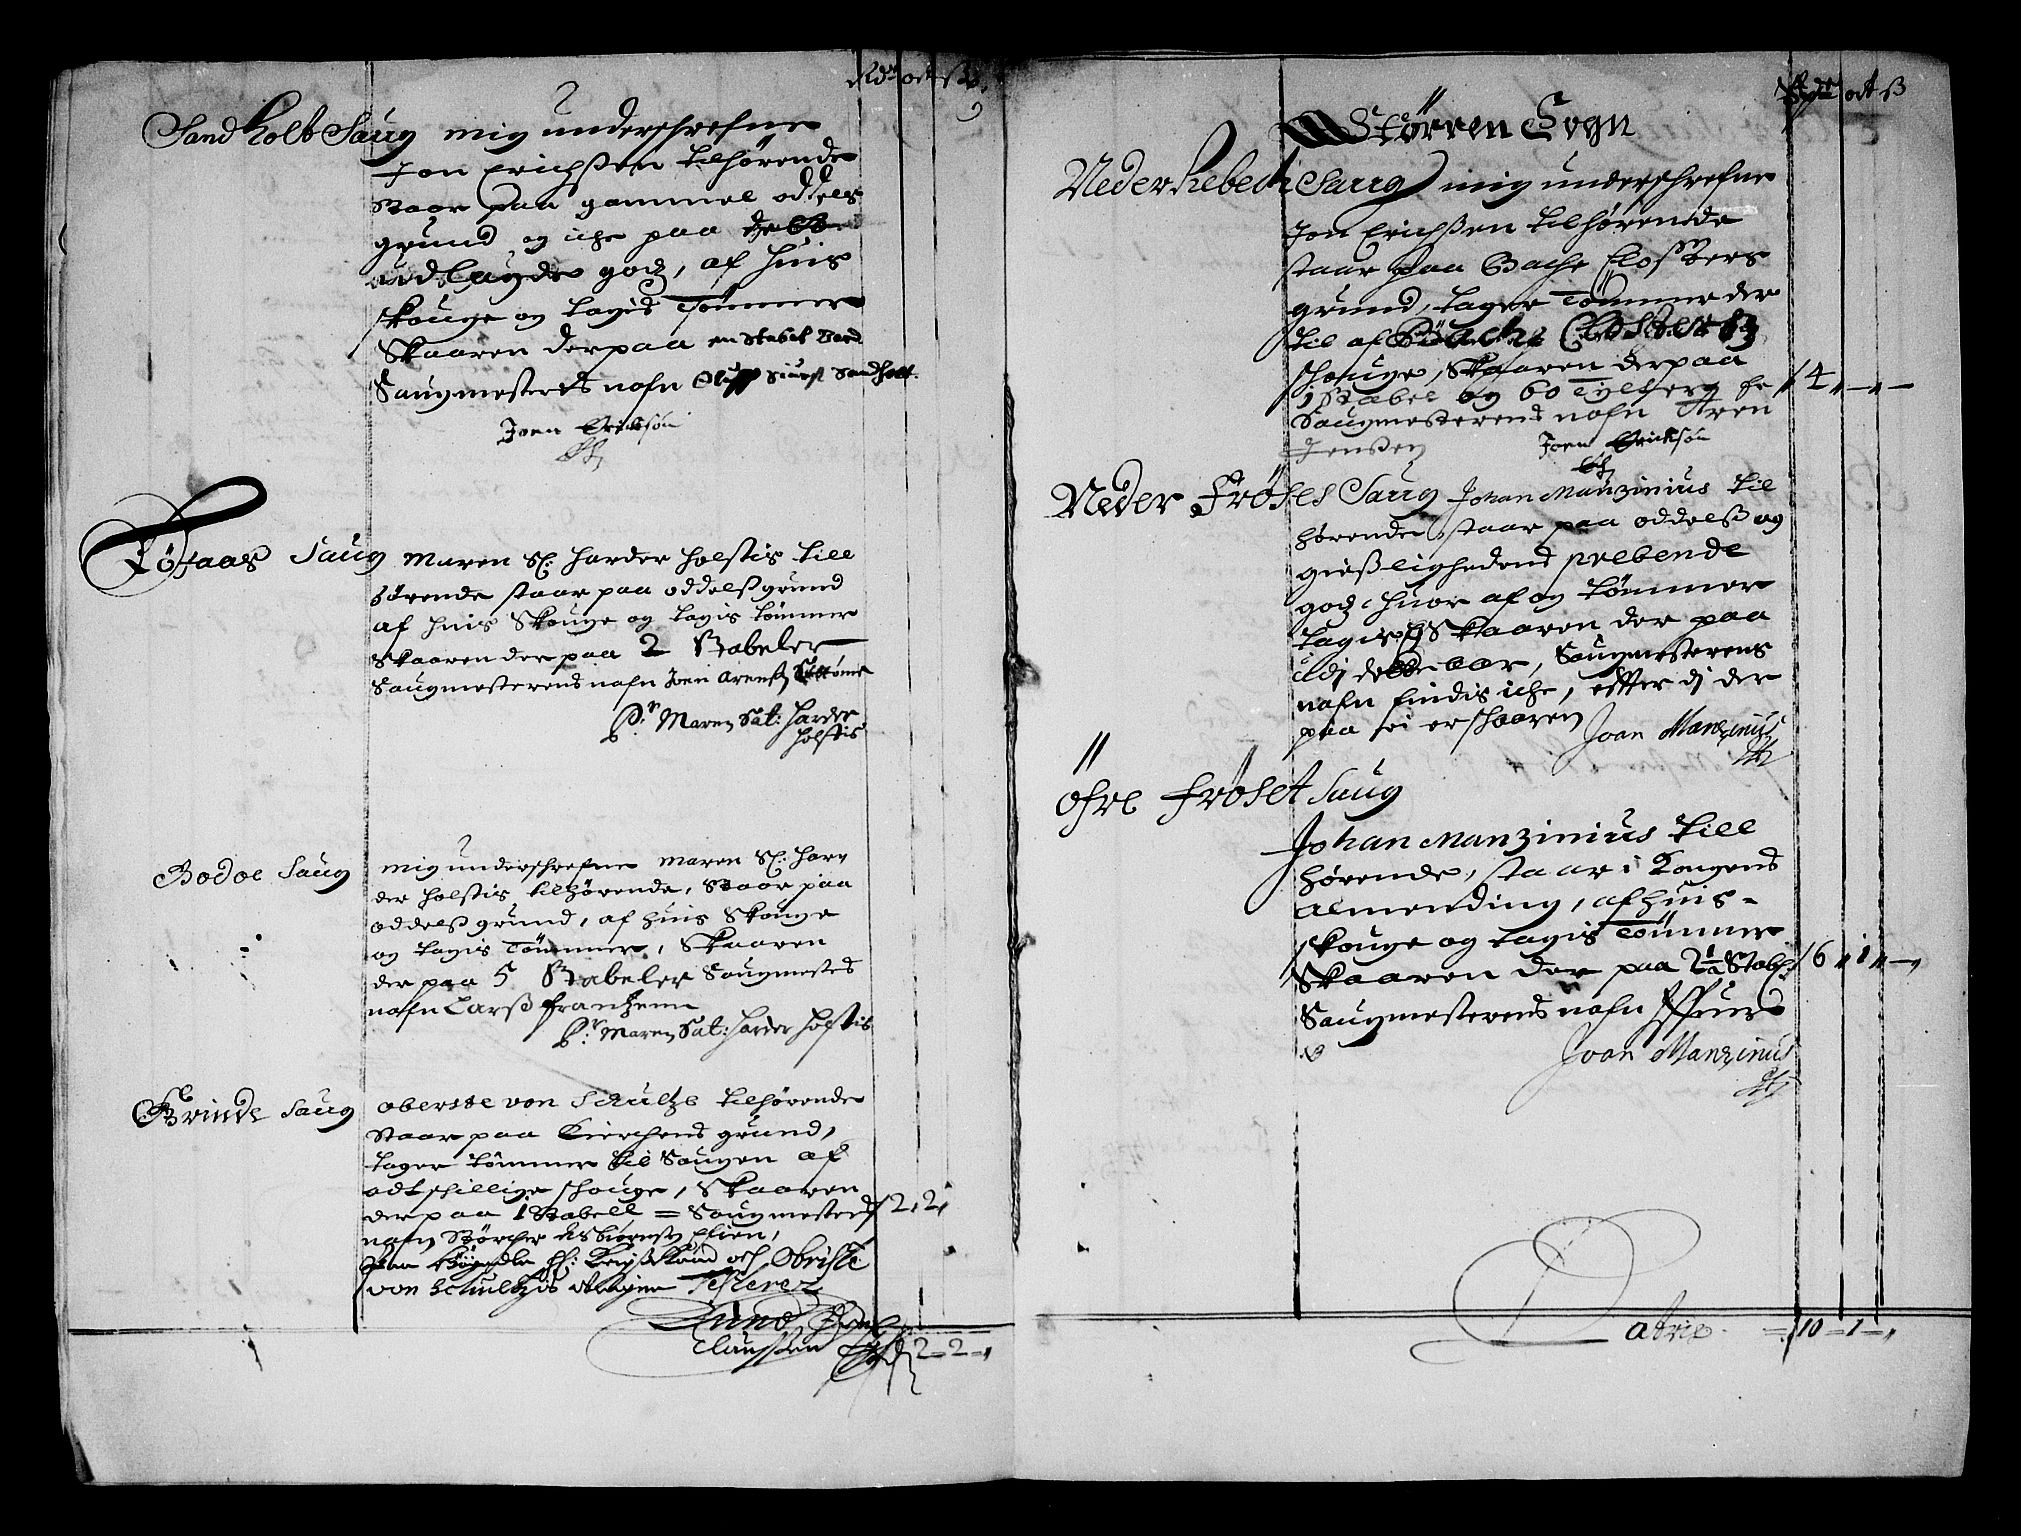 Rdr ort ß
Sandholt Saug mig underschrefne
Jon Erichßen tilhørende
Staar paa gammel oddels
grund og iche paa
udlaugde godz, af huis
skouge og tagis Tømmer
Skaaren derpaa en Stabel Bord
Saugmesterens nafn Oluff Siurß Sandholt.
Joen Erickson
Røfaas Saug Maren Sl: Harder Holstis till
hørende staar paa oddelß grund
af huis Skouge og tagis tømmer
Skaaren der paa 2 Stabeler
Saugmesterens nafn Joen Arenß
Maren Sal: Harder
Holstis
Bodoe Saug mig underschrefne Maren Sl: Har
der Holstis tilhørende, Staar paa
oddelß grund, af huis Skouge
og tagis Tømmer, Skaaren
der paa 5 Stabeler Saugmestes
nafn Larß Franhenn
Maren Sal: Harder Holstis
Grinde Saug oberste von Schultze tilhørende
Staar paa Kierchens grund,
tager tømmer til Saugen af
adtskillige schouge, Skaaren
der paa 1 Stabell = Saugmesters 2 " 2 "
nafn Størcher
von Schultzis
Claussen
2 = 2 = "
Rdr ort ß
Størren Sogn
Neder Rebech Saug mig underschrefne
Jon Erichßen tilhørende
staar paa Bache Closters
grund, tager Tømmer der
til af Bache Closters
schouge, Skaaren derpaa
1 Stabel og 60 Tylter 4 " — " —
Saugmesterens nafn Aren
Jenßen Joen Erickson
Neder Frøses Saug Johan Manzinius til
hørende staar paa oddelß og
gießlighedens prebende
godz huor af og tømmer
tagis Skaaren der paa
udj dette aar, Saugmesterens
nafn findis iche, efftter dj der
paa ei er schaaren Joan Manzinius
Øfre Frøset Saug
Johan Manzinius till
hørende, staar i Kongens
almending, af huis-
skouge og tagis Tømmer
Skaaren der paa 2½ Stabel 6 " 1 " — "
Saugmesterens nafn
Joan Manzinius
Latris = 10 = 1 = "